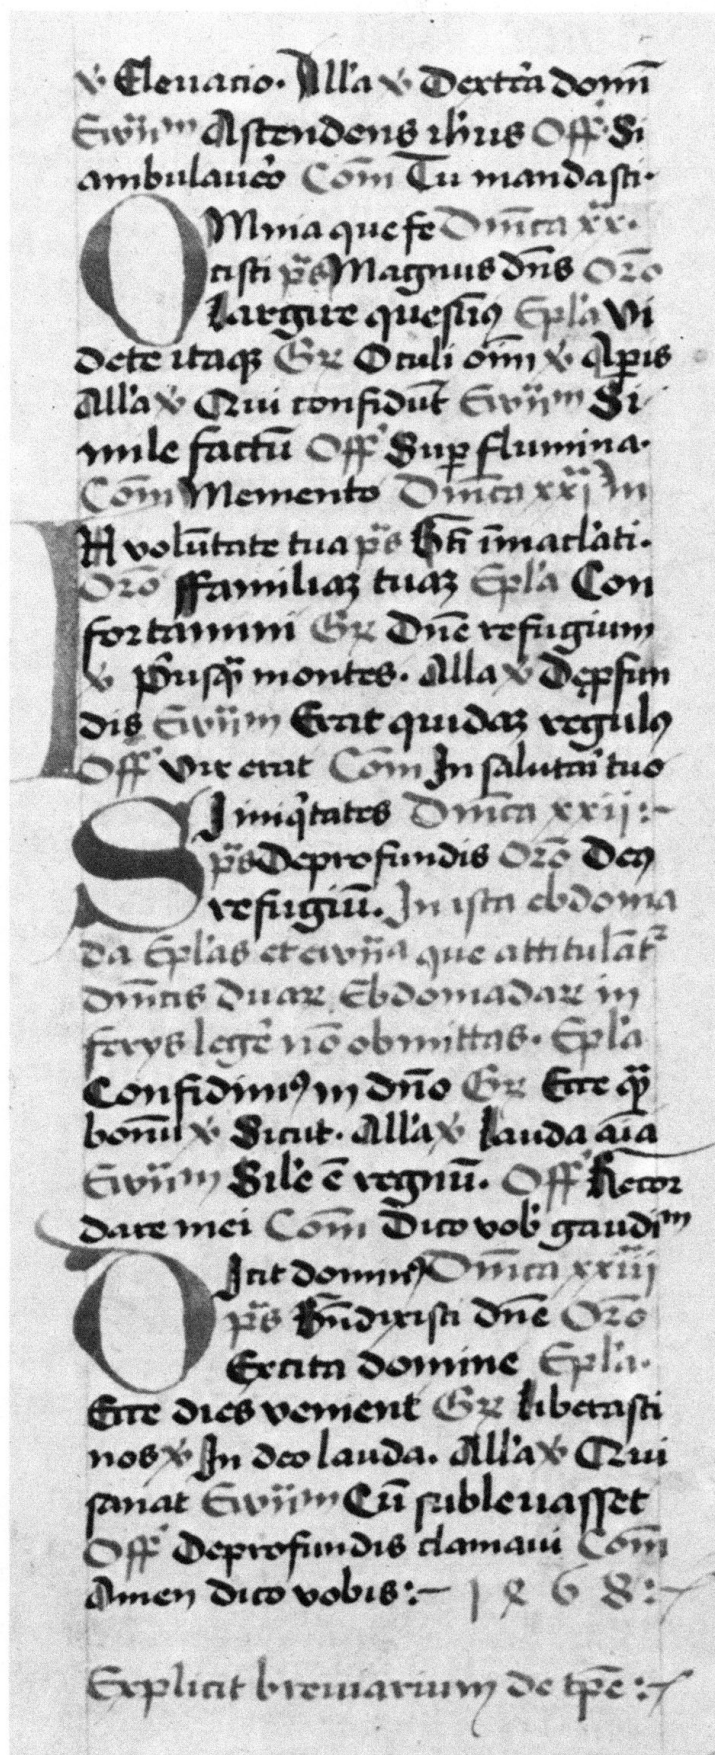 v Eleuacio. All'a v Dext'ra domī
Ewn̄m Ascendens ih'us Off' Si
ambulauero Com̄ Tu mandasti.
OMnia que fe Dnīca xx.
cisti ps Magnus dn̄s Oro
Largire quesum9 Epl'a Vi
dete itaqz Gr Oculi oīm v Aperis
All'a v Qui confidūt Ewn̄m Si
mile factū Off' Super flumina.
Com̄ Memento Dnīca xxi In
IN volūtate tua ps Bt̄i īmacl'ati.
Oro ffamiliaz tuaz Epl'a Con
fortamini Gr Dn̄e refugium
v P'usq̄ montes. Alla v De pfun
dis Ewn̄m Erat quidaz regul9
Off' Vir erat Com̄ In salutar' tuo
SI iniq'tates Dnīca xxij :~
ps De profundis Oro De9
refugiū. In ista ebdoma
da Epl'as et ewn̄a que attitulāt'
dnīcis duar Ebdomadar in
ferijs leg'e nō obmittas. Epl'a
Confidim9 in dn̄o Gr Ecce q̄
bonū v Sicut. All'a v Lauda aīa
Ewn̄m Sil'e ē regnū. Off' Recor
dare mei Com̄ Dico vob' gaudim
DIcit domin9 Dnīca xxiij
ps Bn̄dixisti dn̄e Oro
Excita domine Epl'a.
Ecce dies venient Gr Liberasti
nos v In deo lauda. All'a v Qui
sanat Ewn̄m Cū subleuasset
Off' De profundis clamaui Com̄
Amen dico vobis :~ 1468 :~
Explicit breuiarium de tp̄e :~